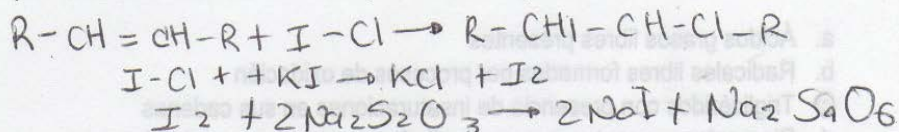 R-CH=CH-R + I-Cl → R-CHI-CH-Cl-R
I-Cl + KI → KCl + I2
I2 + 2Na2S2O3 → 2NaI + Na2S4O6